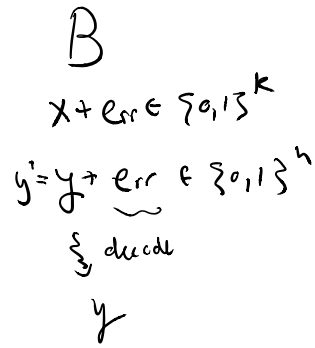 B
x + err ∈ {0,1}^k
y' = y + err ∈ {0,1}^n
decode
y